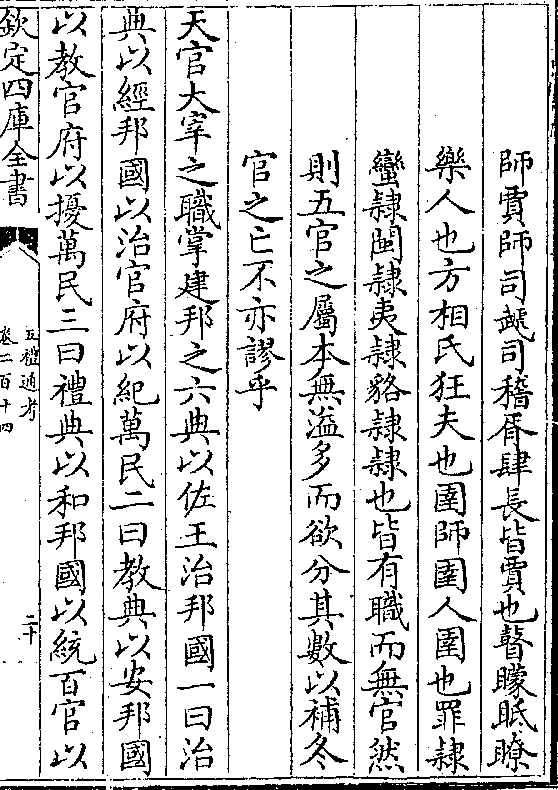 師賈師司虣司稽胥肆長皆賈也瞽矇眡瞭
樂人也方相氏狂夫也圉師圉人圉也罪隸
蠻隸閩隸夷隸貉隸隸也皆有職而無官然
則五官之屬本無溢多而欲分其數以補冬
官之亡不亦謬乎
天官大宰之職掌建邦之六典以佐王治邦國一曰治
典以經邦國以治官府以紀萬民二曰教典以安邦國
以教官府以擾萬民三曰禮典以和邦國以統百官以
欽定四庫全書
五禮通考
卷二百十四
二十